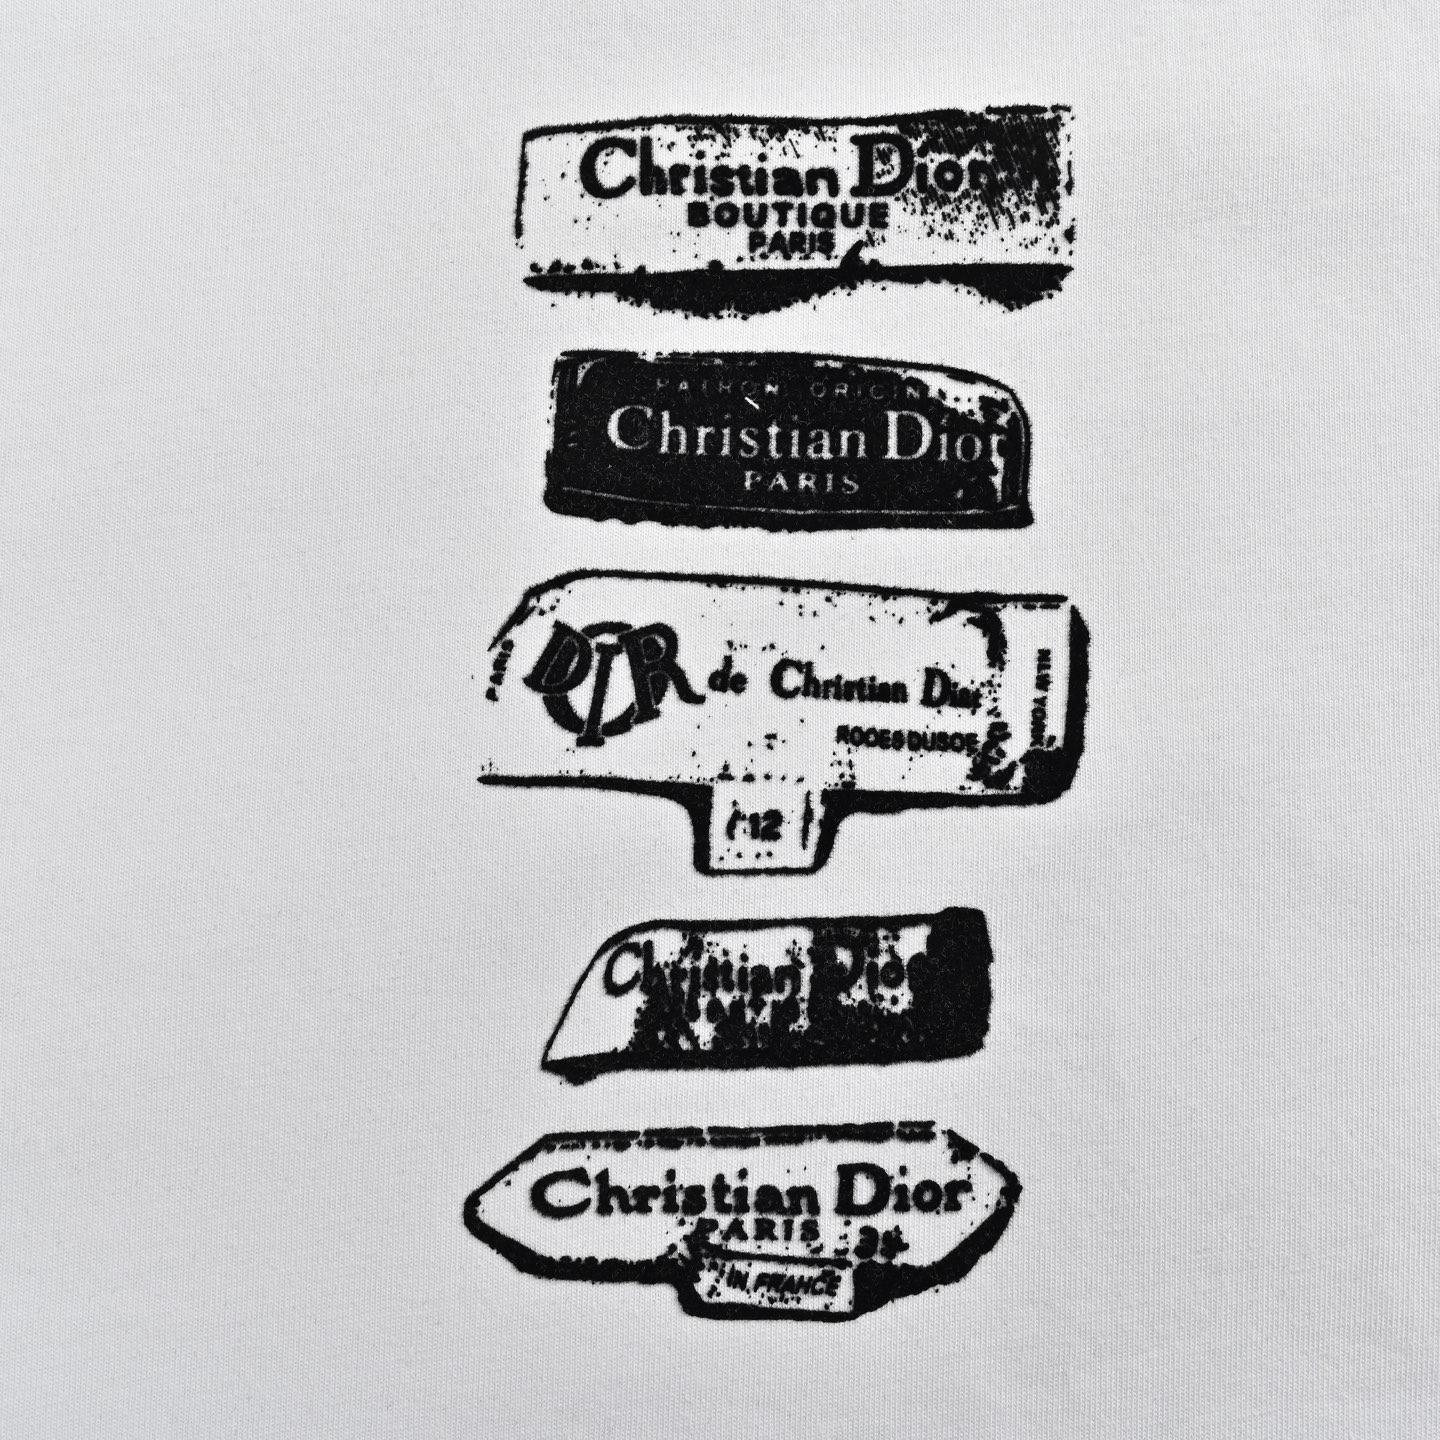 Christian Dior
BOUTIQUE
PARIS
PATRON ORIGIN
Christian Dior
PARIS
PARIS
DIOR de Christian Dior
12
Christian Dior
Christian Dior
PARIS
IN FRANCE